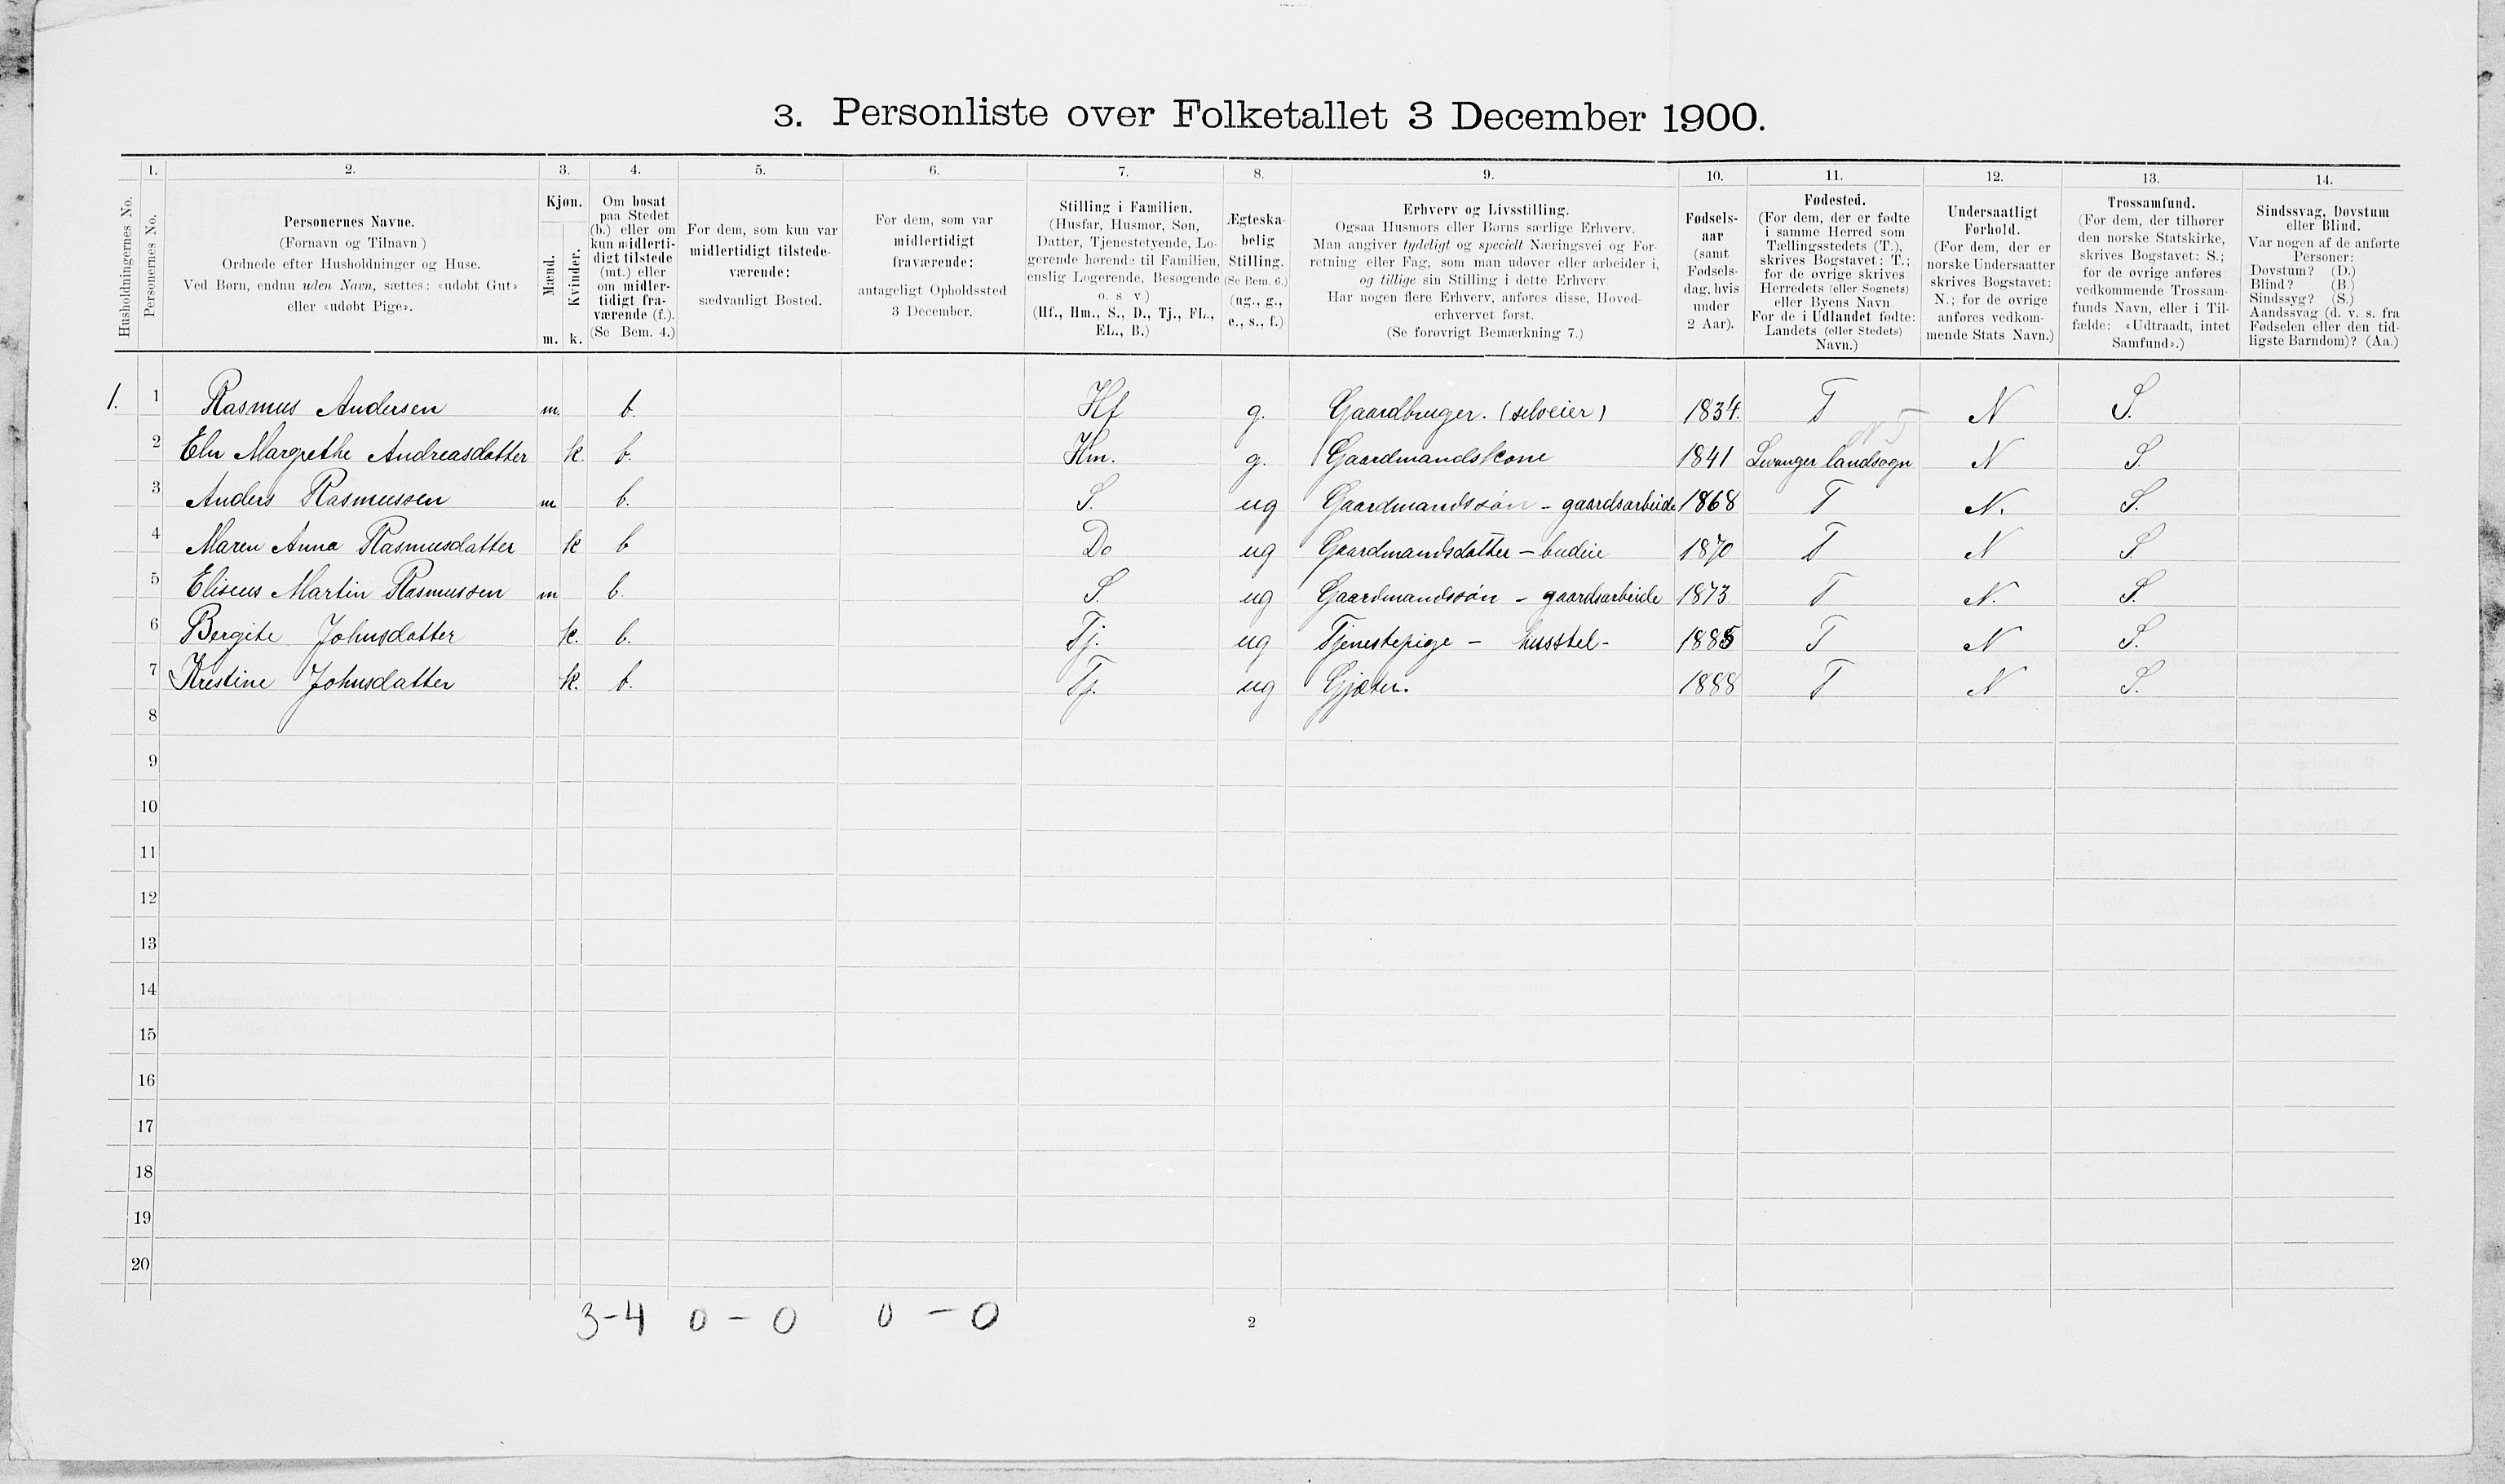 3. Personliste over Folketallet 3 December 1900.
Husholdningernes No.
1.
Personernes No.
2.
Personernes Navne.
(Fornavn og Tilnavn)
Ordnede efter Husholdninger og Huse.
Ved Børn, endnu uden Navn, sættes: «udøbt Gut»
eller «udøbt Pige».
3.
Kjøn.
Mænd.
Kvinder.
m. k.
4.
Om bosat
paa Stedet
(b.) eller om
kun midlerti-
digt tilstede
(mt.) eller
om midler-
tidigt fra-
værende (f.).
(Se Bem. 4.)
5.
For dem, som kun var
midlertidigt tilstede-
værende:
sædvanligt Bosted.
6.
For dem, som var
midlertidigt
fraværende:
antageligt Opholdssted
3 December.
7.
Stilling i Familien.
(Husfar, Husmor, Søn,
Datter, Tjenestetyende, Lo-
gerende hørende til Familien,
enslig Logerende, Besøgende
o. s v.)
(Hf., Hm., S., D., Tj., FL.,
EL., B.)
8.
Ægteska-
belig
Stilling.
(Se Bem. 6.)
(ug., g.,
e., s., f.)
9.
Erhverv og Livsstilling.
Ogsaa Husmors eller Børns særlige Erhverv.
Man angiver tydeligt og specielt Næringsvei og For-
retning eller Fag, som man udøver eller arbeider i,
og tillige sin Stilling i dette Erhverv.
Har nogen flere Erhverv, anføres disse, Hoved-
erhvervet først.
(Se forøvrigt Bemærkning 7.)
10.
Fødsels-
aar
(samt
Fødsels-
dag, hvis
under
2 Aar).
11.
Fødested.
(For dem, der er fødte
i samme Herred som
Tællingsstedets (T.),
skrives Bogstavet: T.;
for de øvrige skrives
Herredets (eller Sognets)
eller Byens Navn.
For de i Udlandet fødte:
Landets (eller Stedets)
Navn.)
12.
Undersaatligt
Forhold.
(For dem, der er
norske Undersaatter
skrives Bogstavet:
N.; for de øvrige
anføres vedkom-
mende Stats Navn.)
13.
Trossamfund.
(For dem, der tilhører
den norske Statskirke,
skrives Bogstavet: S.;
for de øvrige anføres
vedkommende Trossam-
funds Navn, eller i Til-
fælde: «Udtraadt, intet
Samfund».)
14.
Sindssvag, Døvstum
eller Blind.
Var nogen af de anførte
Personer:
Døvstum? (D.)
Blind? (B.)
Sindssyg? (S.)
Aandssvag (d. v. s. fra
Fødselen eller den tid-
ligste Barndom)? (Aa.)
1. 1 Rasmus Andersen m. b. Hf g. Gaardbruger. (selveier) 1834. T N S.
2 Eln Margrethe Andreasdatter k. b. Hm. g. Gaardmandskone 1841 Levanger landsogn N S.
3 Anders Rasmussen m b. S. ug Gaardmandssøn - gaardsarbeide 1868 T N. S.
4 Maren Anna Rasmusdatter k b Do ug Gaardmandsdatter - budeie 1870 T N S
5 Eliseus Martin Rasmussen m b. S. ug Gaardmandssøn - gaardsarbeide 1873 T N. S.
6 Bergite Johnsdatter k. b. Tj. ug Tjenestepige - husstel - 1885 T N S.
7 Kristine Johnsdatter k. b. Tj. ug Gjæter. 1888 T N S.
8
9
10
11
12
13
14
15
16
17
18
19
20
3-4 0 - 0 0 - 0
2